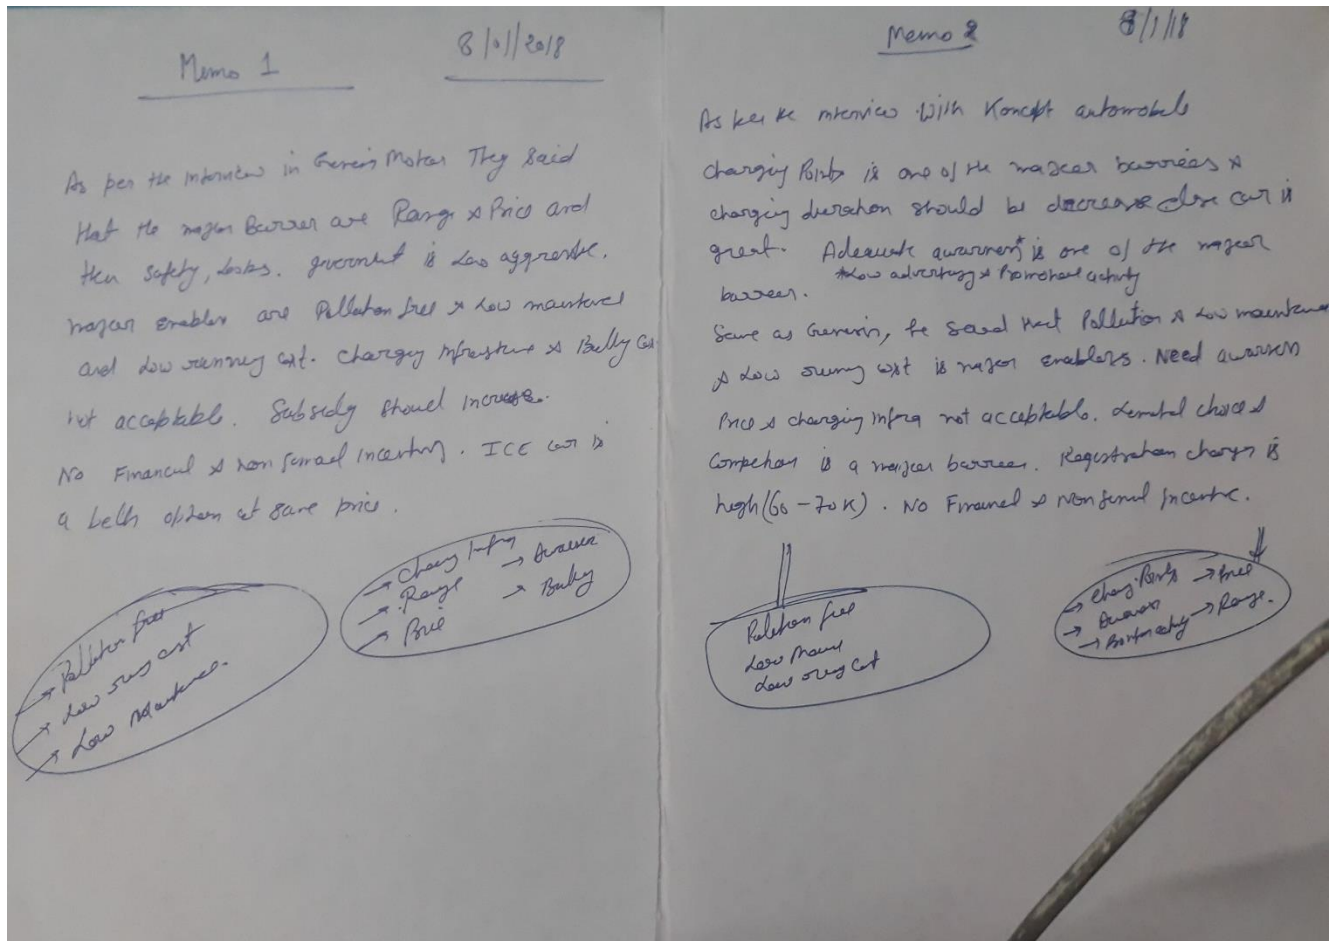 Memo 1
8/01/2018
As per the Interview in Genesis Motors They said
that the major Barrier are Range & Price and
then safety, looks. government is Less aggressive.
major enablers are Pollution free & Low maintenance
and Low running cost. Charging Infrastructure & Battery Cost
not acceptable. Subsidy should increase.
No Financial & non financial incentives. ICE car is
a better option at same price.
→ Charging Infra → Awareness
→ Range → Battery
→ Price
→ Pollution free
→ Low running cost
→ Low Maintenance.
Memo 2
8/1/18
As per the interview with Koncept automobile
Charging Points is one of the major barriers &
charging duration should be decrease else car is
great. Adequate awareness is one of the major
barrier. *Low advertising & Promotional activity
Same as Genesis, he said that Pollution & Low maintenance
& Low running cost is major enablers. Need awareness
Price & charging infra not acceptable. Limited choice &
Competitors is a major barrier. Registration charges is
high (60-70K). No Financial & Non financial incentive.
Pollution free
Low Main
Low runing Cost
→ Charg. Points → Price
→ Awareness → Range.